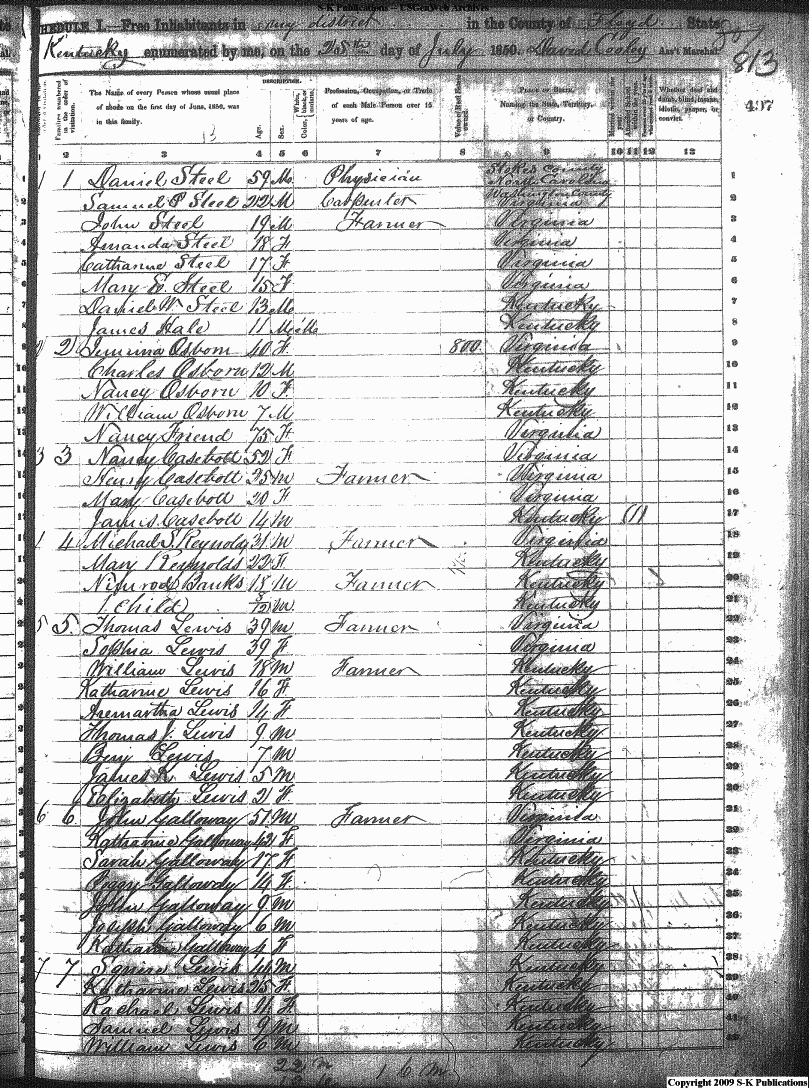 S-K Publications - USGenWeb Archives
SCHEDULE I.—Free Inhabitants in any district in the County of Floyd State
Kentucky enumerated by me, on the 25th day of July 1850. David Cooley Ass't Marshal.
813
407
DESCRIPTION.
The Name of every Person whose usual place of abode on the first day of June, 1850, was in this family.
Age. Sex. Color,
Profession, Occupation, or Trade of each Male Person over 15 years of age.
Value of Real Estate owned.
Place of Birth, Naming the State, Territory, or Country.
Whether deaf and dumb, blind, insane, idiotic, pauper, or convict.
1 2 3 4 5 6 7 8 9 10 11 12 13
1 1 Daniel Steel 59 M Physician Stokes County North Carolina 1
Samuel P Steel 22 M Carpenter Washington County Virginia 2
John Steel 19 M Farmer Virginia 3
Amanda Steel 18 F Virginia 4
Catharine Steel 17 F Virginia 5
Mary E. Steel 15 F Virginia 6
Daniel W Steel 13 M Kentucky 7
James Hale 11 M Kentucky 8
2 2 Jemima Osborn 40 F 800 Virginia 9
Charles Osborn 12 M Kentucky 10
Nancy Osborn 10 F Kentucky 11
William Osborn 7 M Kentucky 12
Nancy Friend 75 F Virginia 13
3 3 Nancy Casebolt 52 F Virginia 14
Henry Casebolt 25 M Farmer Virginia 15
Mary Casebolt 20 F Virginia 16
James Casebolt 14 M Kentucky 1 17
4 4 Michael S Reynolds 31 M Farmer Virginia 18
Mary Reynolds 22 F Kentucky 19
Nimrod Banks 18 M Farmer Kentucky 20
(Child) M Kentucky 21
5 5 Thomas Lewis 39 M Farmer Virginia 22
Sophia Lewis 39 F Virginia 23
William Lewis 18 M Farmer Kentucky 24
Katharine Lewis 16 F Kentucky 25
Aremartha Lewis 14 F Kentucky 26
Thomas J. Lewis 9 M Kentucky 27
Benj Lewis 7 M Kentucky 28
James K Lewis 5 M Kentucky 29
Elizabeth Lewis 2 F Kentucky 30
6 6 John Galloway 57 M Farmer Virginia 31
Katharine Galloway 42 F Virginia 32
Sarah Galloway 17 F Kentucky 33
Peggy Galloway 14 F Kentucky 34
John Galloway 9 M Kentucky 35
Joseph Galloway 6 M Kentucky 36
Katharine Galloway 4 F Kentucky 37
7 7 Squire Lewis 46 M Kentucky 38
Katharine Lewis 25 F Kentucky 39
Rachael Lewis 11 F Kentucky 40
Samuel Lewis 9 M Kentucky 41
William Lewis 6 M Kentucky 42
Copyright 2009 S-K Publications